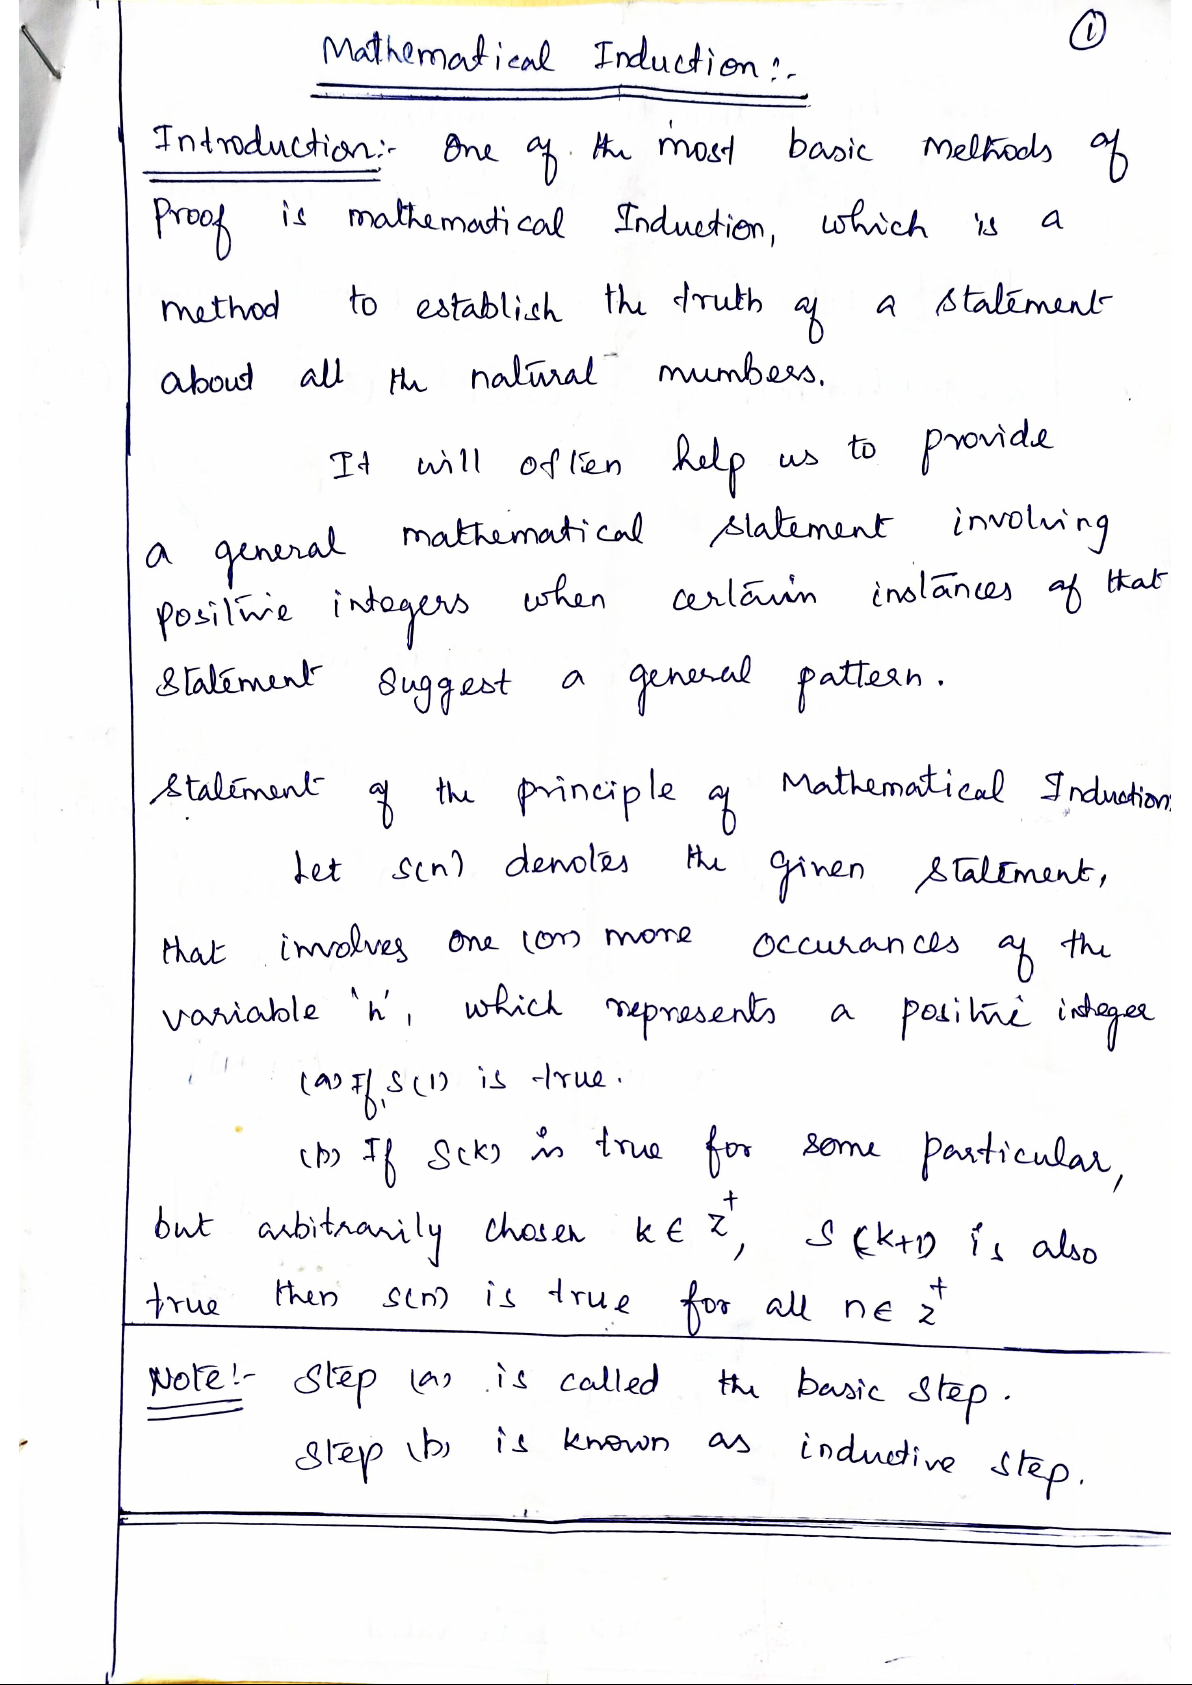 ①
Mathematical Induction:-
Introduction:- One of the most basic methods of
Proof is mathematical Induction, which is a
method to establish the truth of a statement
about all the natural numbers.
It will often help us to provide
a general mathematical statement involving
positive integers when certain instances of that
statement suggest a general pattern.
Statement of the principle of Mathematical Induction:
Let S(n) denotes the given statement,
that involves one (or) more occurances of the
variable 'n', which represents a positive integer
(a) If S(1) is true.
(b) If S(k) is true for some particular,
but arbitrarily chosen k ∈ Z⁺, S(k+1) is also
true then S(n) is true for all n ∈ Z⁺
Note:- Step (a) is called the basic step.
Step (b) is known as inductive step.